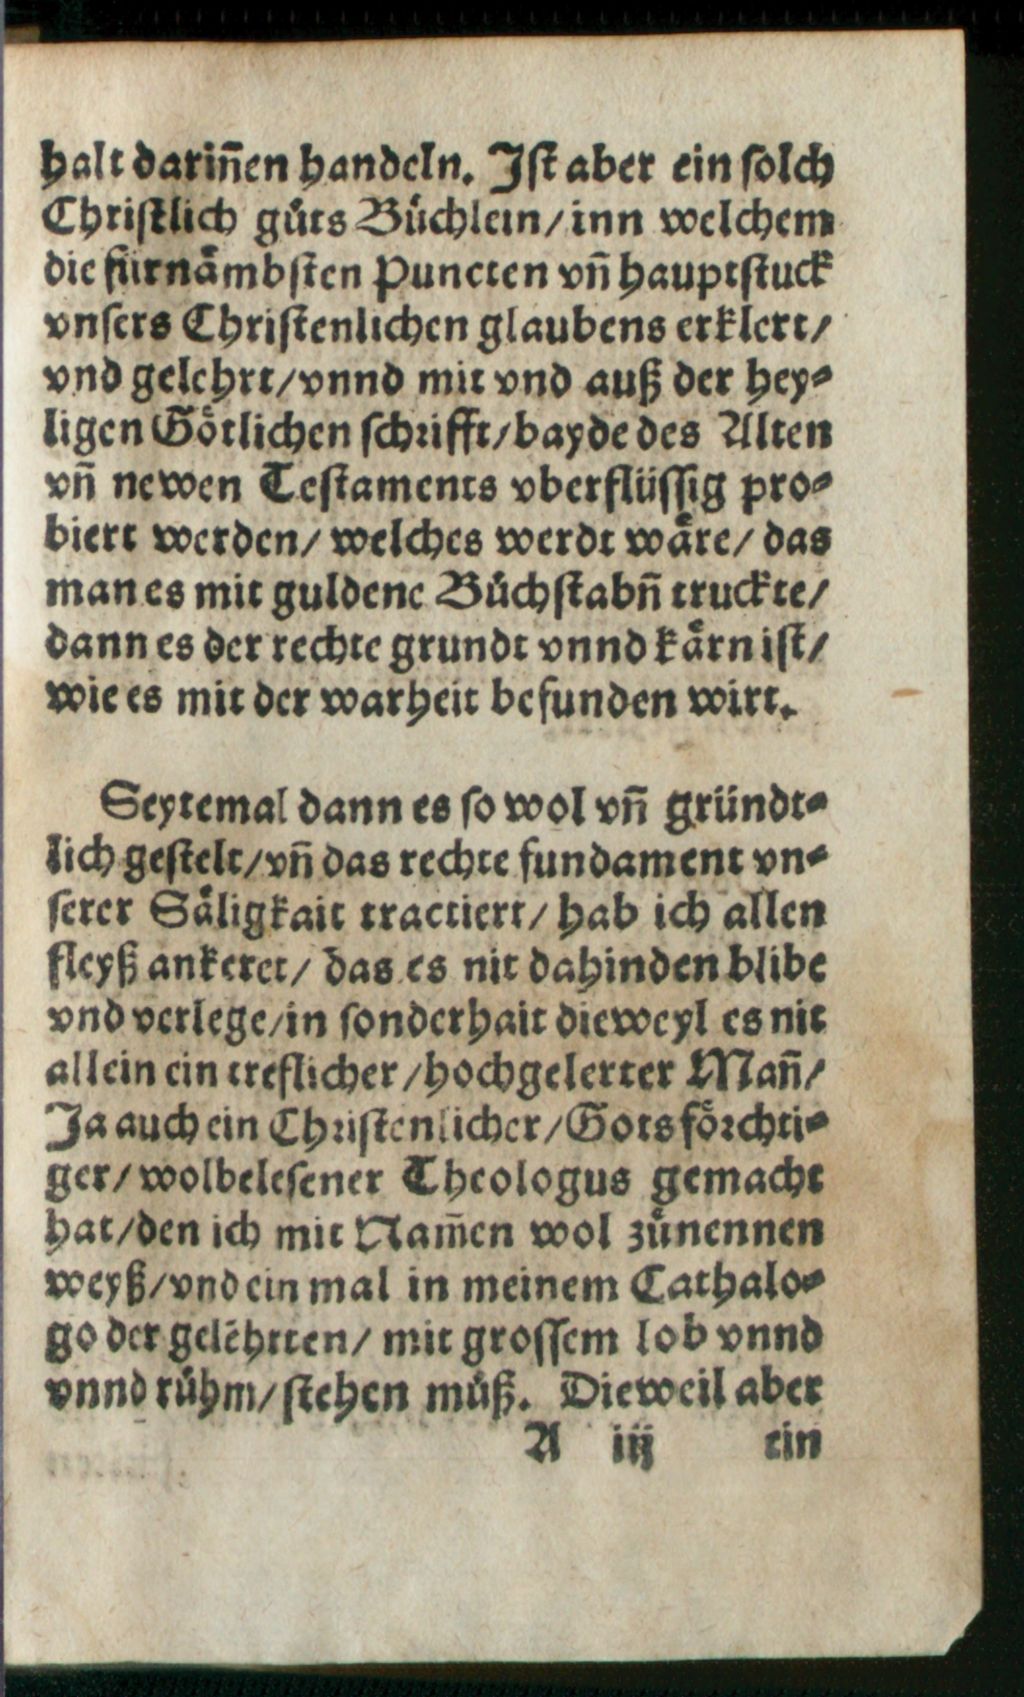 halt dariñen handeln. Ist aber ein solch
Christlich gůts Bůchlein / inn welchem
die fürnämbsten Puncten vñ hauptstuck
vnsers Christenlichen glaubens erklert /
vnd gelehrt / vnnd mit vnd auß der hey⸗
ligen Götlichen schrifft / bayde des Alten
vñ newen Testaments vberflüssig pro⸗
biert werden / welches werdt wäre / das
man es mit guldene Bůchstabñ truckte /
dann es der rechte grundt vnnd kärn ist /
wie es mit der warheit befunden wirt.
Seytemal dann es so wol vñ gründt⸗
lich gestelt / vñ das rechte fundament vn⸗
serer Säligkait tractiert / hab ich allen
fleyß ankeret / das es nit dahinden blibe
vnd verlege / in sonderhait dieweyl es nit
allein ein treflicher / hochgelerter Mañ /
Ja auch ein Christenlicher / Gots förchti⸗
ger / wolbelesener Theologus gemacht
hat / den ich mit Nam̄en wol zůnennen
weyß / vnd ein mal in meinem Cathalo⸗
go der gelehrten / mit grossem lob vnnd
vnnd růhm / stehen můß. Dieweil aber
A iij ein